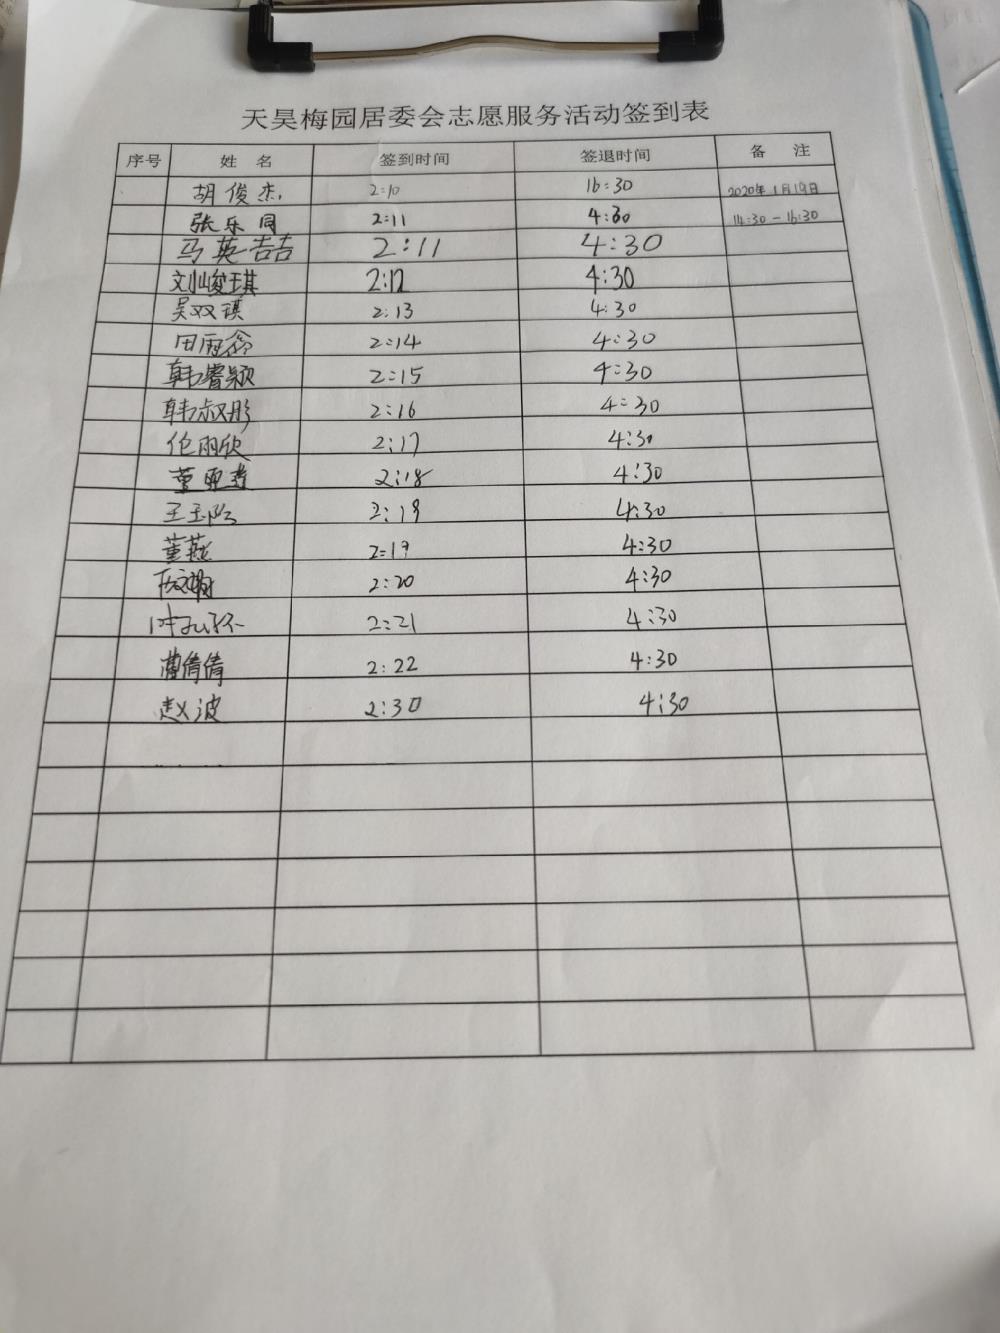 天昊梅园居委会志愿服务活动签到表
序号 姓 名 签到时间 签退时间 备 注
胡俊杰 2:10 16:30 2020年1月19日
张乐同 2:11 4:30 14:30-16:30
马英喆 2:11 4:30
刘峻琪 2:12 4:30
吴双琪 2:13 4:30
田雨鑫 2:14 4:30
韩睿颖 2:15 4:30
韩淑彤 2:16 4:30
丽欣 2:17 4:30
董 2:18 4:30
王玉 2:19 4:30
董燕 2:19 4:30
2:20 4:30
2:21 4:30
倩倩 2:22 4:30
赵波 2:30 4:30